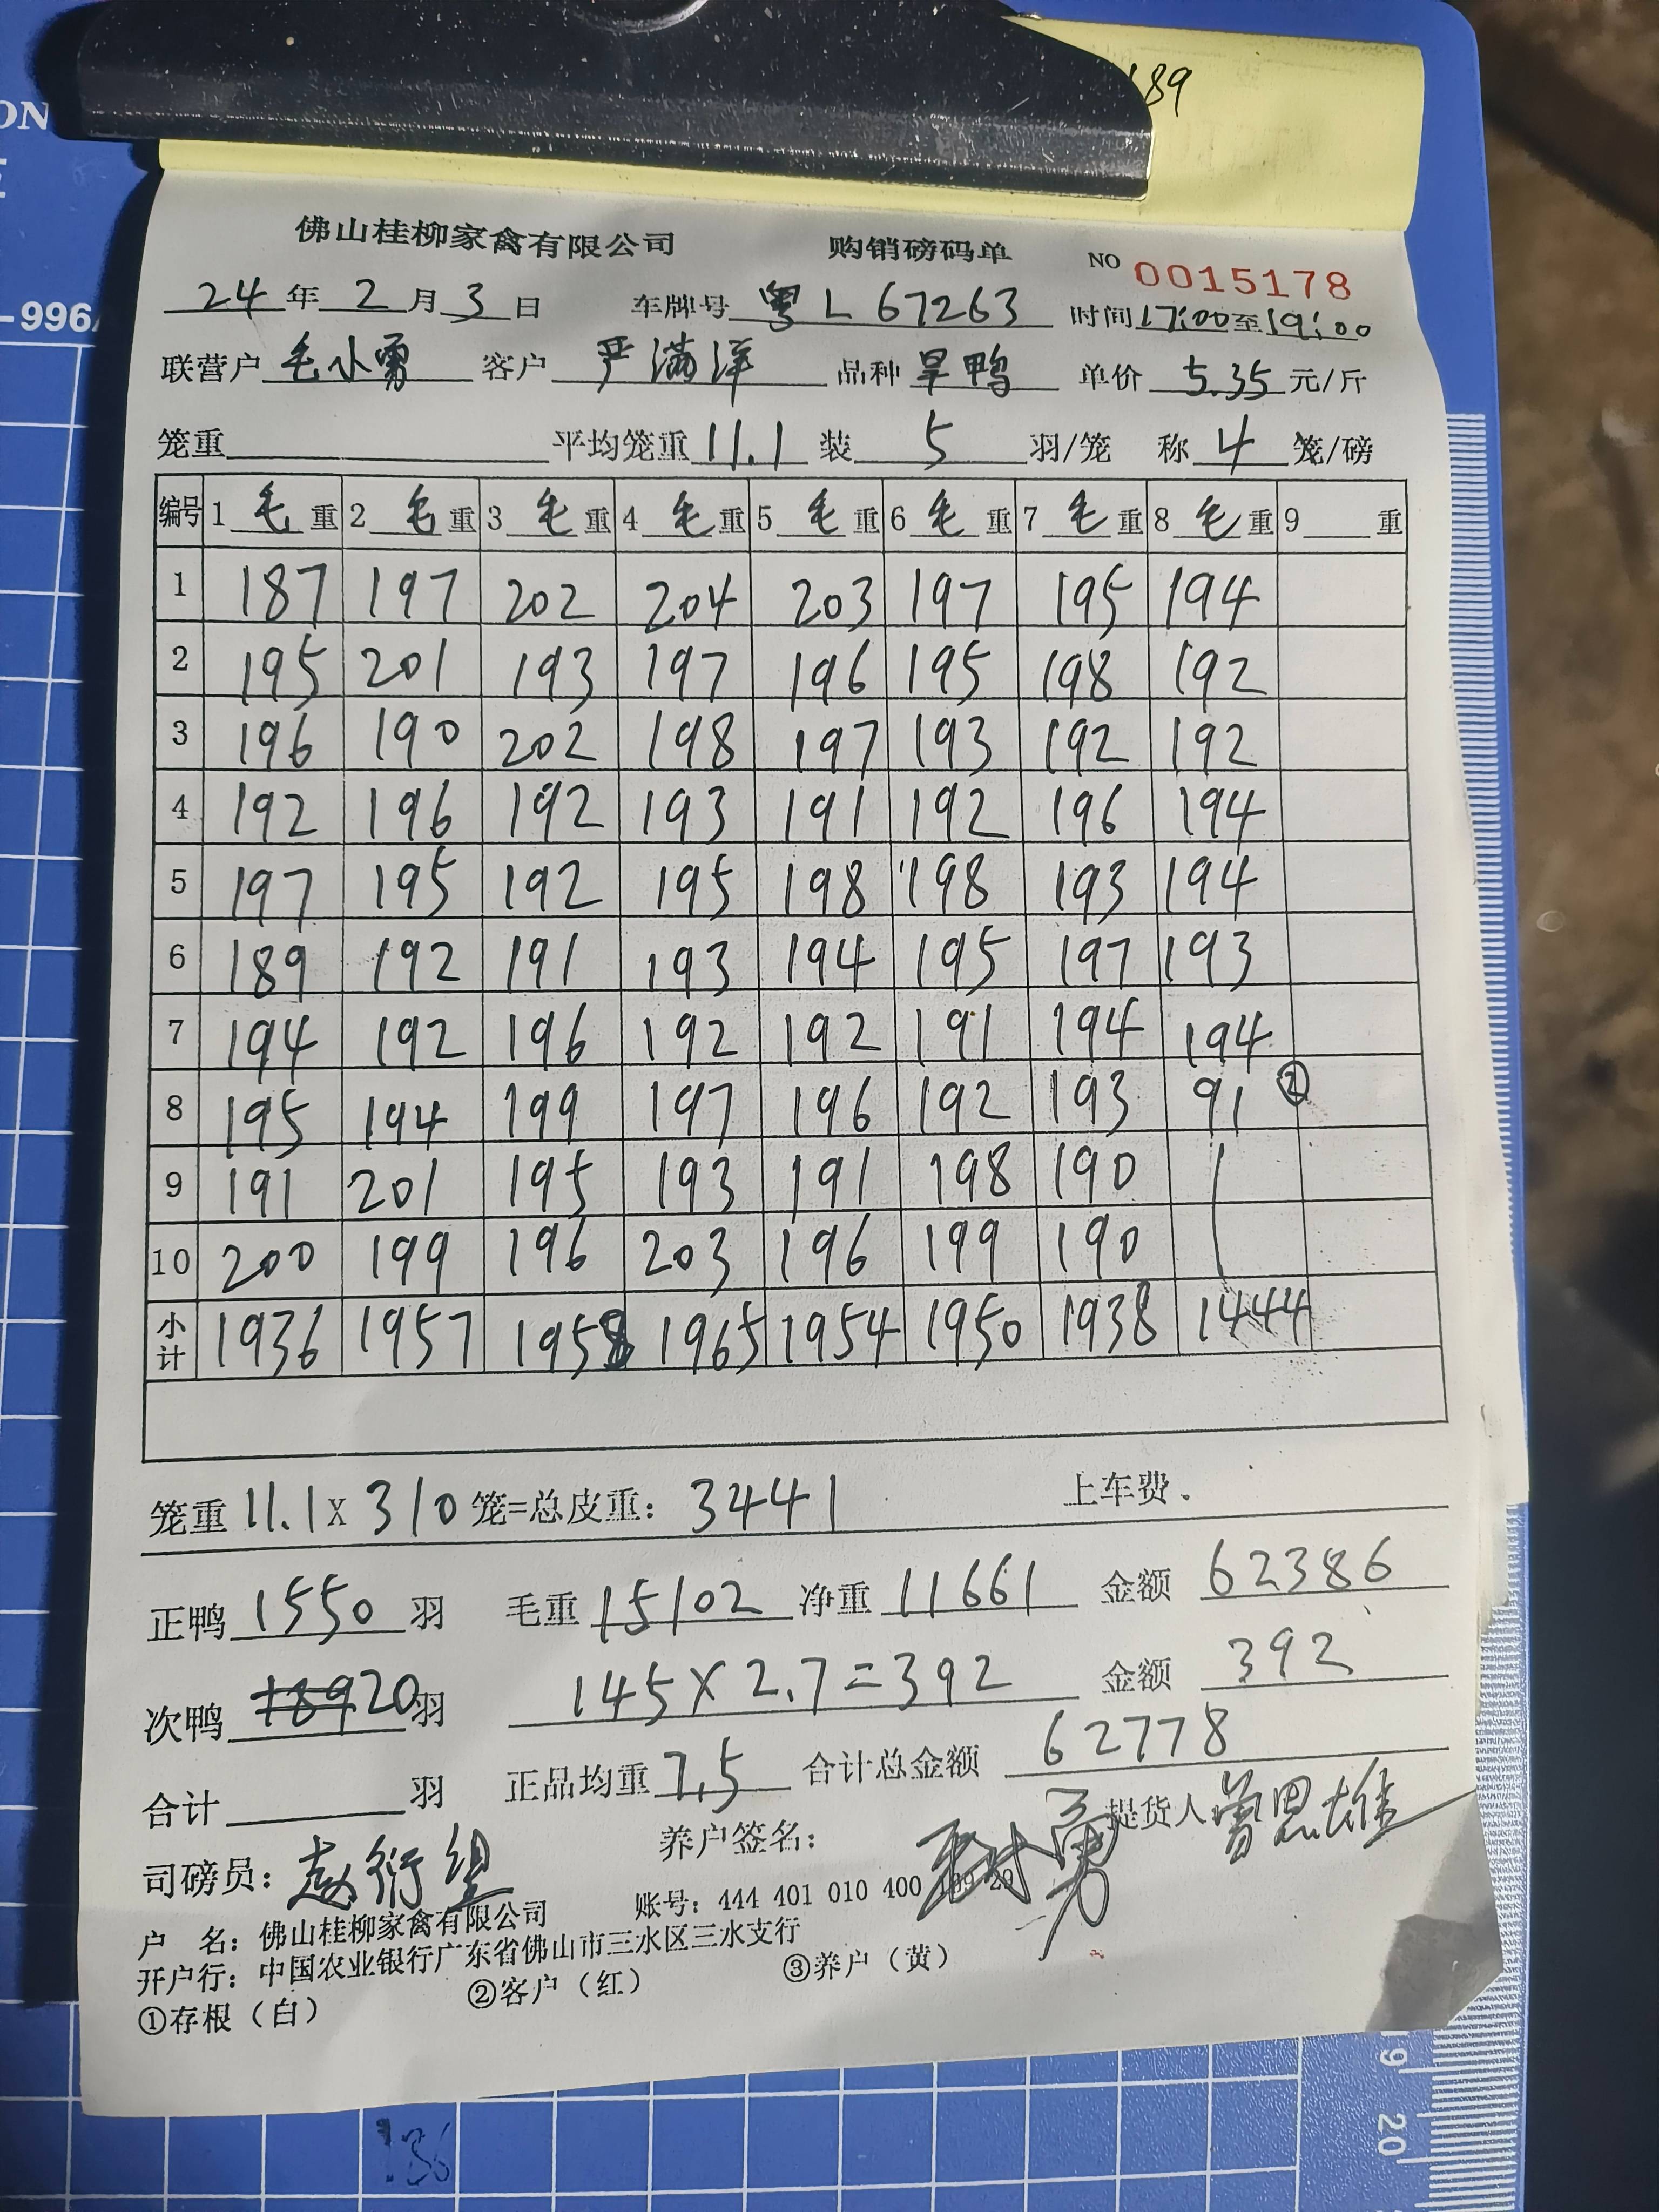 189
ON
-996
佛山桂柳家禽有限公司 购销磅码单 NO 0015178
24年2月3日 车牌号 粤L 67263 时间17:00至19:00
联营户 毛小勇 客户 严满洋 品种 旱鸭 单价 5.35 元/斤
笼重 平均笼重 11.1 装 5 羽/笼 称 4 笼/磅
编号 1 毛 重 2 毛 重 3 毛 重 4 毛 重 5 毛 重 6 毛 重 7 毛 重 8 毛 重 9 重
1 187 197 202 204 203 197 195 194
2 195 201 193 197 196 195 198 192
3 196 190 202 198 197 193 192 192
4 192 196 192 193 191 192 196 194
5 197 195 192 195 198 198 193 194
6 189 192 191 193 194 195 197 193
7 194 192 196 192 192 191 194 194
8 195 194 199 197 196 192 193 91 ②
9 191 201 195 193 191 198 190
10 200 199 196 203 196 199 190
小计 1936 1957 1958 1965 1954 1950 1938 1444
笼重 11.1 x 310 笼=总皮重: 3441 上车费.
正鸭 1550 羽 毛重 15102 净重 11661 金额 62386
次鸭 20羽 145 x 2.7 = 392 金额 392
合计 羽 正品均重 7.5 合计总金额 62778
司磅员: 养户签名: 提货人 曾思雄
户 名: 佛山桂柳家禽有限公司 账号: 444 401 010 400
开户行: 中国农业银行广东省佛山市三水区三水支行
①存根（白） ②客户（红） ③养户（黄）
19
20